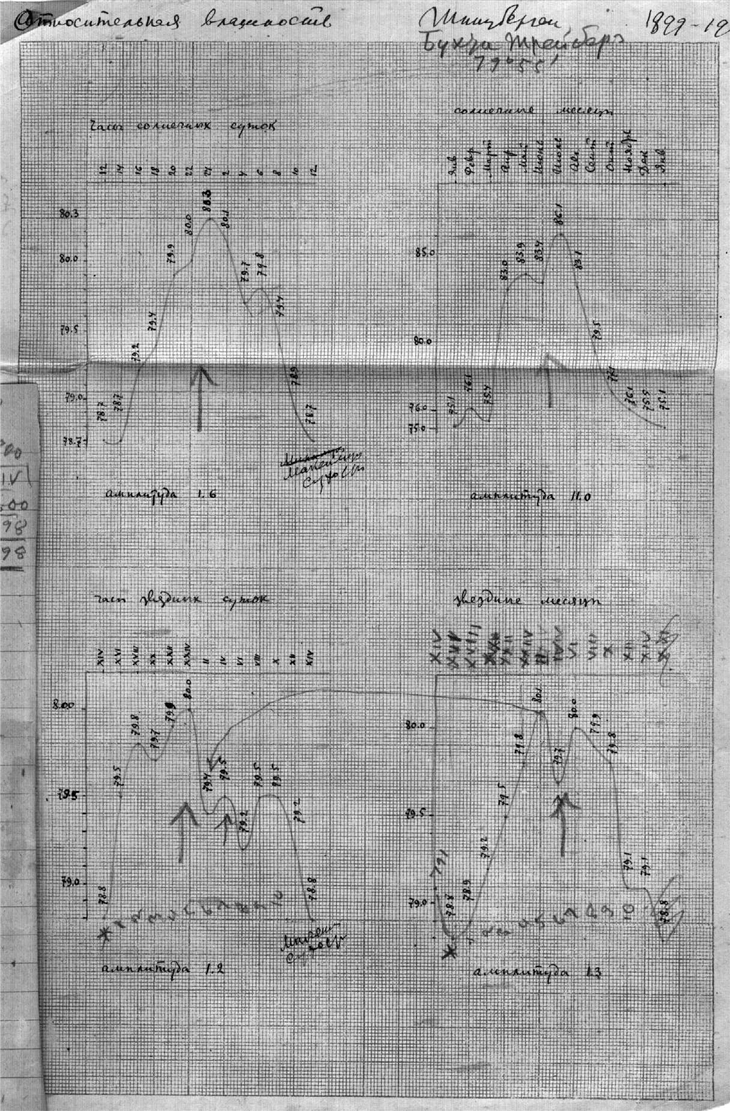 Относительная влажность
Шпицберген
1899-19
79°55'
часы солнечных суток
12 14 16 18 20 22 24 2 4 6 8 10 12
80.3
80.0
79.5
79.0
78.7
78.7 78.7 79.2 79.4 79.9 80.0 80.3 80.1 79.7 79.8 79.4 78.9 78.7
амплитуда 1.6
солнечные месяцы
Янв Февр Март Апр Май Июнь Июль Авг Сент Окт Ноябрь Дек Янв
85.0
80.0
76.0
75.0
75.1 76.1 75.4 83.0 83.9 83.4 86.1 83.1 79.5 77.1 76.1 75.5 75.1
амплитуда 11.0
IV
98
98
часы звездных суток
XIV XVI XVIII XX XXII XXIV II IV VI VIII X XII XIV
80.0
79.5
79.0
78.8 79.5 79.8 79.7 79.9 80.0 79.4 79.5 79.2 79.5 79.5 79.2 78.8
амплитуда 1.2
звездные месяцы
XIV XVIII XXII XXIV VI VIII X XII XIV
80.0
79.5
79.0
79.1 78.8 78.9 79.2 79.5 79.8 80.1 79.7 80.0 79.9 79.8 79.1 79.1 78.8
амплитуда 1.3